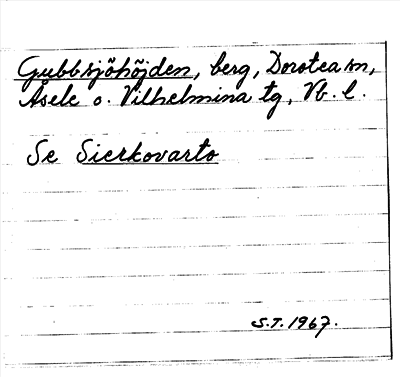 Gubbsjöhöjden, berg, Dorotea sn,
Åsele o. Vilhelmina tg, Vb. l.
Se Sierkovarto
S.T. 1967.